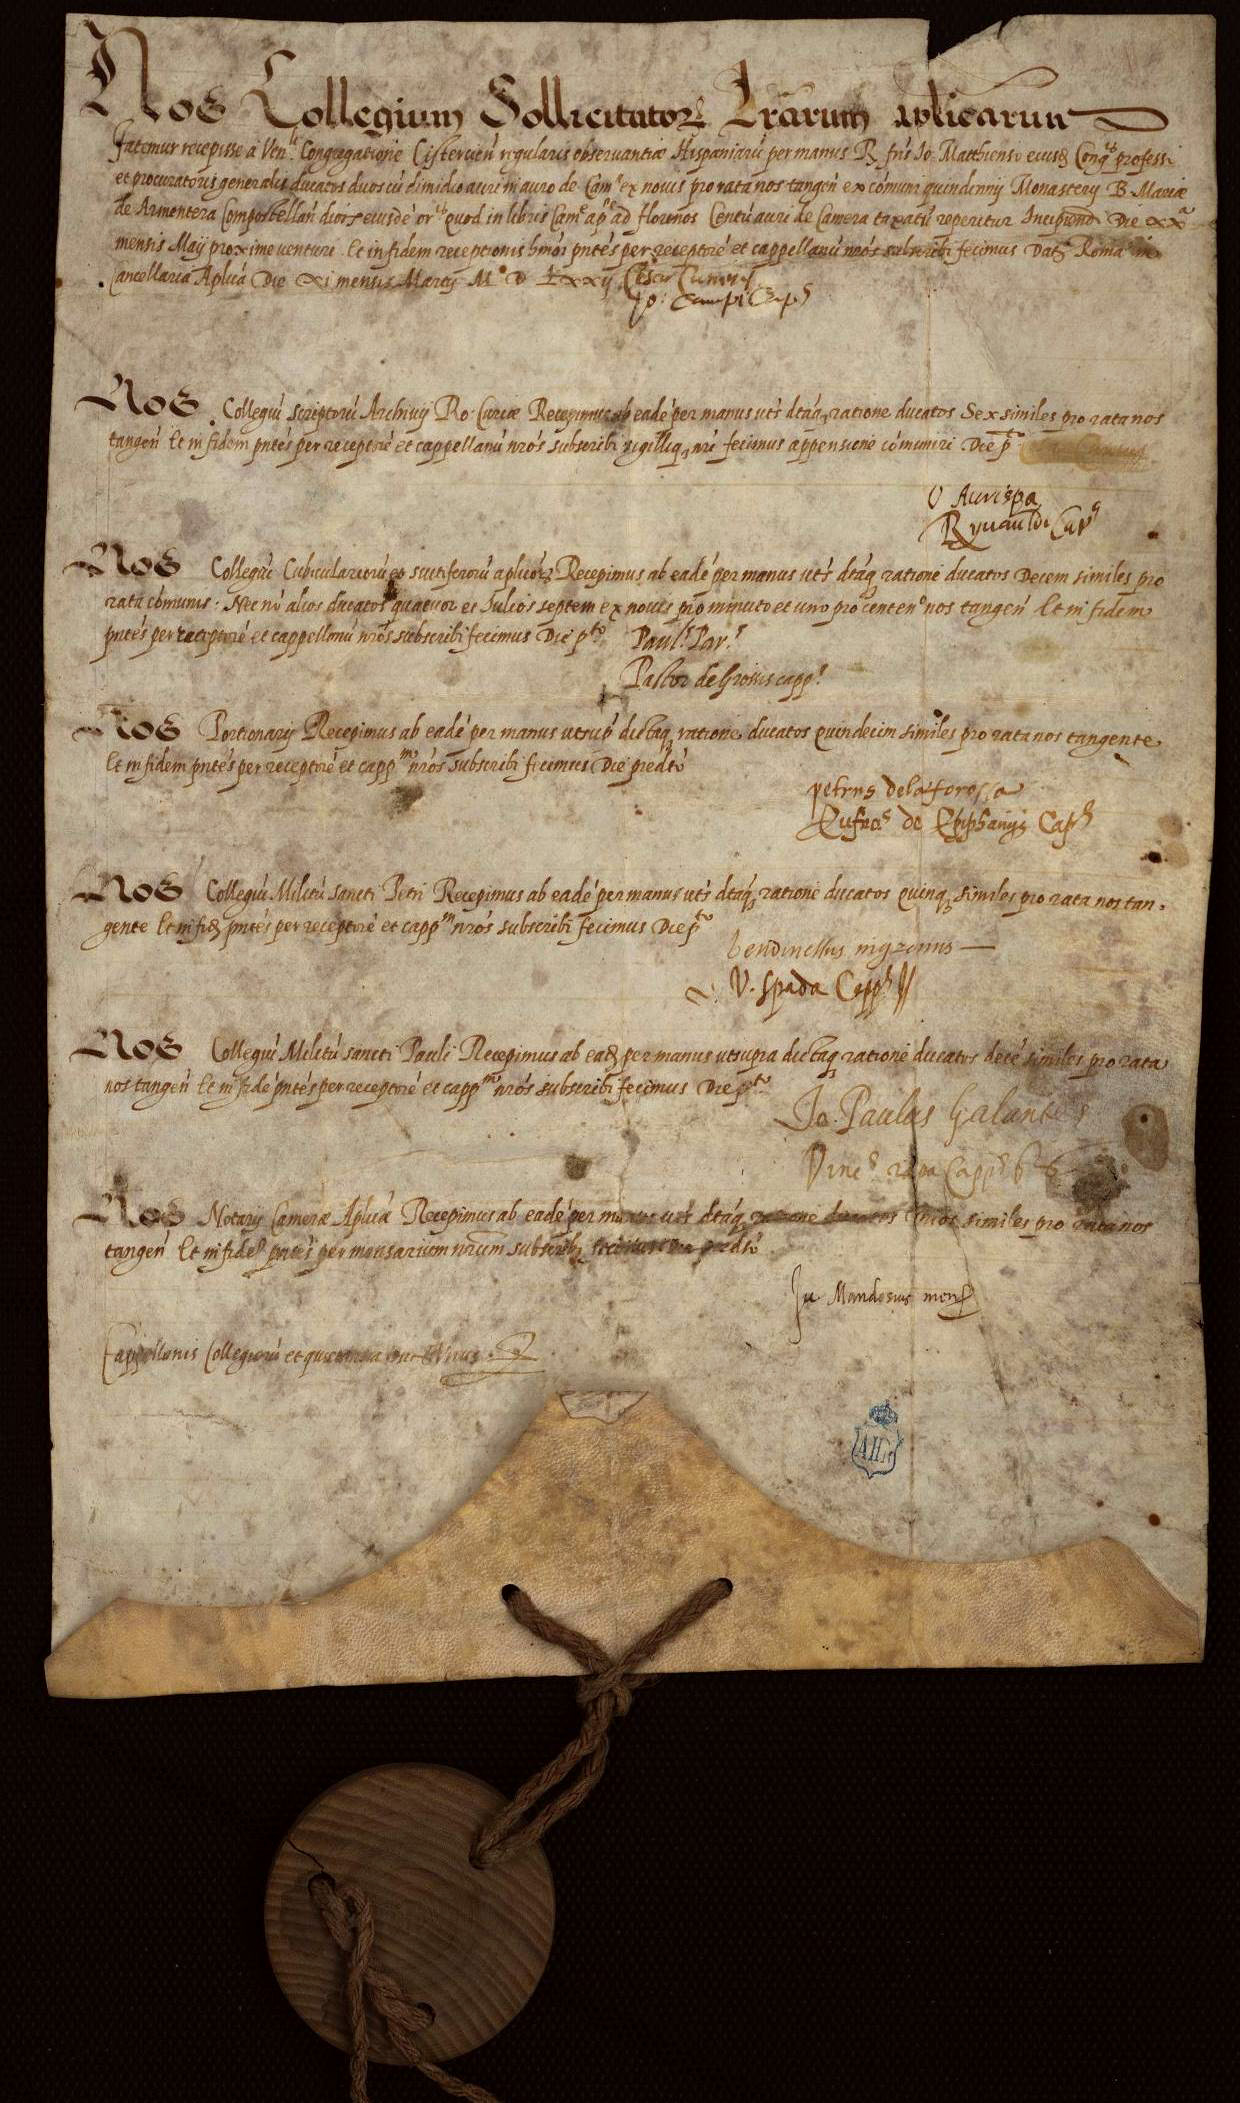 Nos Collegium Sollicitator̃ Lr̃arum aplicarum
fatemur recepisse a Ven.li Congregatione Cistercień regularis observantiæ Hispaniarũ per manus R. fris Jo. Matthei eiusdẽ Congnis professi
et procuratoris generalis ducatos duos cũ dimidio auri in auro de Camã ex novis pro rata nos tangeñ ex cõmuni quindennij Monasterij B. Mariæ
de Armentera Compostellañ dioc̃ eiusdẽ ordis quod in libris Camẽ apcẽ ad florenos Centũ auri de Camera taxatũ reperitur Die xxa
mensis Maij proxime venturi. Et in fidem receptionis hmõi pñtes per receptorẽ et cappellanũ nrõs subscribi fecimus Dat̃ Romæ in
Cancellaria Aplicã Die xi mensis Martij M° D Lxxij
Jo: Campi Caps
Nos Collegiũ scriptorũ Archivij Ro: Curiæ Recepimus ab eadẽ per manus uts̃ dtãq ratione ducatos Sex similes pro rata nos
tangeñ Et in fidem pñtes per receptorẽ et cappellanũ nrõs subscribi sigilliq nri fecimus appensione cõmuniri Die pto
V Aurispa
Rynaldi Caps
Nos Collegiũ Cubiculariorũ et scutiferorũ aplicor̃ Recepimus ab eadẽ per manus uts̃ dtãq ratione ducatos Decem similes pro
rata cõmunis. Nec nõ alios ducatos quatuor et Julios septem ex novis pro minuto et uno pro centeno nos tangeñ Et in fidem
pñtes per receptorẽ et cappellanũ nrõs subscribi fecimus Die pto Pauls Par.s
Pastor de Grossis capps
Nos Portionarij Recepimus ab eadẽ per manus utsup̃ dictaq ratione ducatos quindecim similes pro rata nos tangente
Et in fidem pñtes per receptorẽ et cappm nrõs subscribi fecimus Die predtõ
petrus dela
Eufras de Epiphanijs Caps
Nos Collegiũ Militũ sancti Petri Recepimus ab eadẽ per manus uts̃ dtãq ratione ducatos quinq similes pro rata nos tan-
gente Et in fidẽ pñtes per receptorẽ et cappm nrõs subscribi fecimus Die pto
bendinellus
V. Spada Capps
Nos Collegiũ Militũ sancti Pauli Recepimus ab eadẽ per manus utsupra dictaq ratione ducatos decẽ similes pro rata
nos tangeñ Et in fidẽ pñtes per receptorẽ et cappm nrõs subscribi fecimus Die pto
Jo. Paulus Galantes
Vincs Capps
Nos Notarij Cameræ Aplicã Recepimus ab eadẽ per manus uts̃ dtãq ratione ducatos similes pro rata nos
tangeñ Et in fidẽ pñtes per mensarium nrum subscribi fecimus Die predtõ
Mandosius mens
Cappellanis Collegiorũ et
AHN